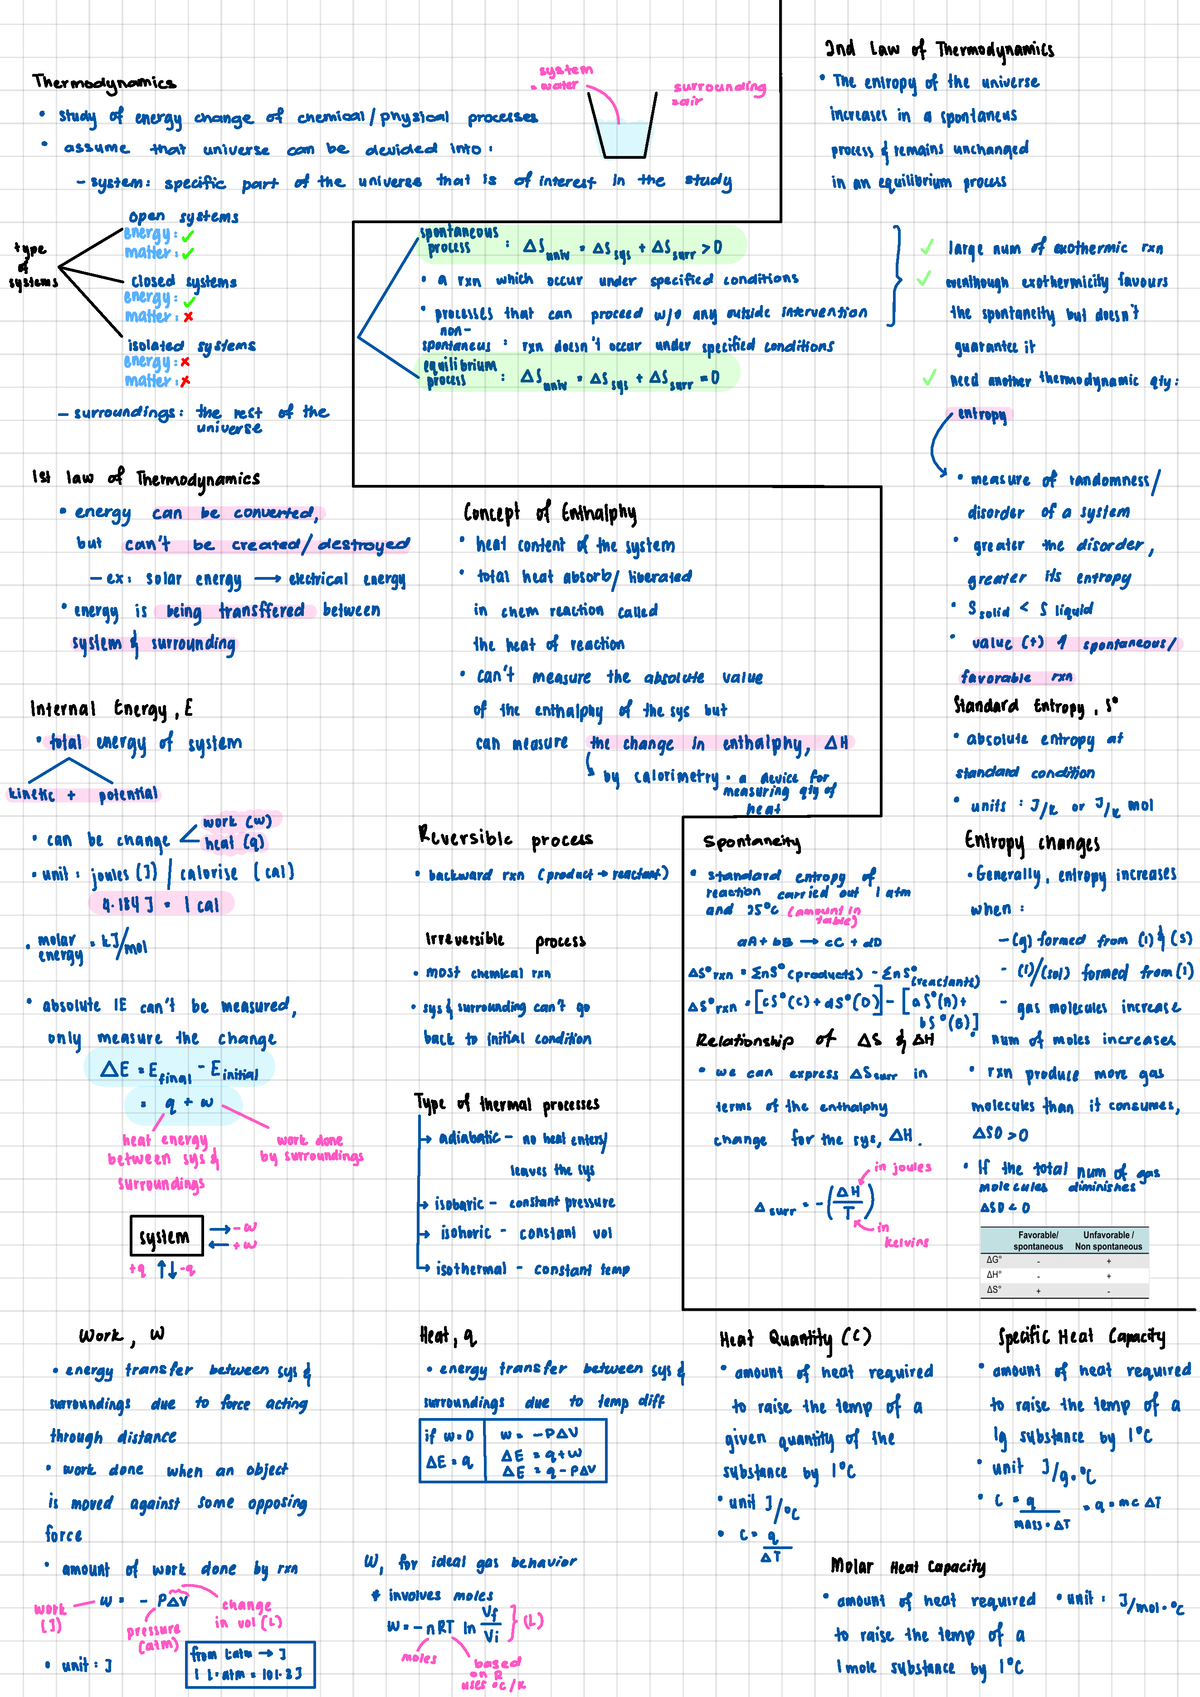 Thermodynamics
• study of energy change of chemical/physical processes
• assume that universe can be devided into:
- system: specific part of the universe that is of interest in the study
system = water
surrounding = air
type of systems
open systems
energy: ✓
matter: ✓
closed systems
energy: ✓
matter: ×
isolated systems
energy: ×
matter: ×
- surroundings: the rest of the
universe
2nd Law of Thermodynamics
• The entropy of the universe
increases in a spontaneus
process & remains unchanged
in an equilibrium process
spontaneous process : ΔS univ = ΔS sys + ΔS surr > 0
• a rxn which occur under specified conditions
• processes that can proceed w/o any outside intervention
non-
spontaneus : rxn doesn't occur under specified conditions
equilibrium process : ΔS univ = ΔS sys + ΔS surr = 0
✓ large num of exothermic rxn
✓ eventhough exothermicity favours
the spontaneity but doesn't
guarantee it
✓ need another thermodynamic qty:
entropy
• measure of randomness/
disorder of a system
• greater the disorder,
greater its entropy
• S solid < S liquid
• value (+) ↑ spontaneous/
favorable rxn
1st law of Thermodynamics
• energy can be converted,
but can't be created/destroyed
- ex: solar energy → electrical energy
• energy is being transffered between
system & surrounding
Concept of Enthalphy
• heat content of the system
• total heat absorb/ liberated
in chem reaction called
the heat of reaction
• can't measure the absolute value
of the enthalphy of the sys but
can measure the change in enthalphy, ΔH
↳ by calorimetry • a device for
measuring qty of
heat
Internal Energy, E
• total energy of system
kinetic + potential
• can be change < work (w)
heat (q)
• unit: joules (J) / calorise (cal)
4.184 J = 1 cal
• molar energy = kJ/mol
• absolute IE can't be measured,
only measure the change
ΔE = E final - E initial
= q + w
heat energy
between sys &
surroundings
work done
by surroundings
system
→ -w
← +w
+q ↑↓ -q
Reversible process
• backward rxn (product → reactant)
Irreversible process
• most chemical rxn
• sys & surrounding can't go
back to initial condition
Type of thermal processes
→ adiabatic - no heat enters/
leaves the sys
→ isobaric - constant pressure
→ isohoric - constant vol
→ isothermal - constant temp
Standard Entropy, S°
• absolute entropy at
standard condition
• units : J/K or J/K mol
Spontaneity
• standard entropy of
reaction carried out 1 atm
and 25°C (amount in
table)
aA + bB → cC + dD
ΔS°rxn = ΣnS°(products) - ΣnS°(reactants)
ΔS°rxn = [cS°(C) + dS°(D)] - [aS°(A) +
bS°(B)]
Relationship of ΔS & ΔH
• we can express ΔSsurr in
terms of the enthalphy
change for the sys, ΔH.
Δsurr = -(ΔH/T)
in joules
in kelvins
Entropy changes
• Generally, entropy increases
when :
- (g) formed from (l) & (s)
- (l)/(sol) formed from (s)
- gas molecules increase
• num of moles increases
• rxn produce more gas
molecules than it consumes,
ΔS0 > 0
• If the total num of gas
molecules diminishes
ΔS0 < 0
Favorable/ spontaneous Unfavorable / Non spontaneous
ΔG° - +
ΔH° - +
ΔS° + -
Work, w
• energy transfer between sys &
surroundings due to force acting
through distance
• work done when an object
is moved against some opposing
force
• amount of work done by rxn
w = - PΔV
work (J)
pressure (atm)
change in vol (L)
• unit: J
from Latm → J
1 L·atm = 101.3 J
Heat, q
• energy transfer between sys &
surroundings due to temp diff
if w=0
ΔE = q
w = -PΔV
ΔE = q+w
ΔE = q - PΔV
W, for ideal gas behavior
* involves moles
W = -nRT ln Vf/Vi } (L)
moles
based
on R
uses °C/K
Heat Quantity (C)
• amount of heat required
to raise the temp of a
given quantity of the
substance by 1°C
• unit J/°C
• C = q/ΔT
Specific Heat Capacity
• amount of heat required
to raise the temp of a
1g substance by 1°C
• unit J/g·°C
• C = q/mass·ΔT = q = mcΔT
Molar Heat Capacity
• amount of heat required • unit: J/mol·°C
to raise the temp of a
1 mole substance by 1°C